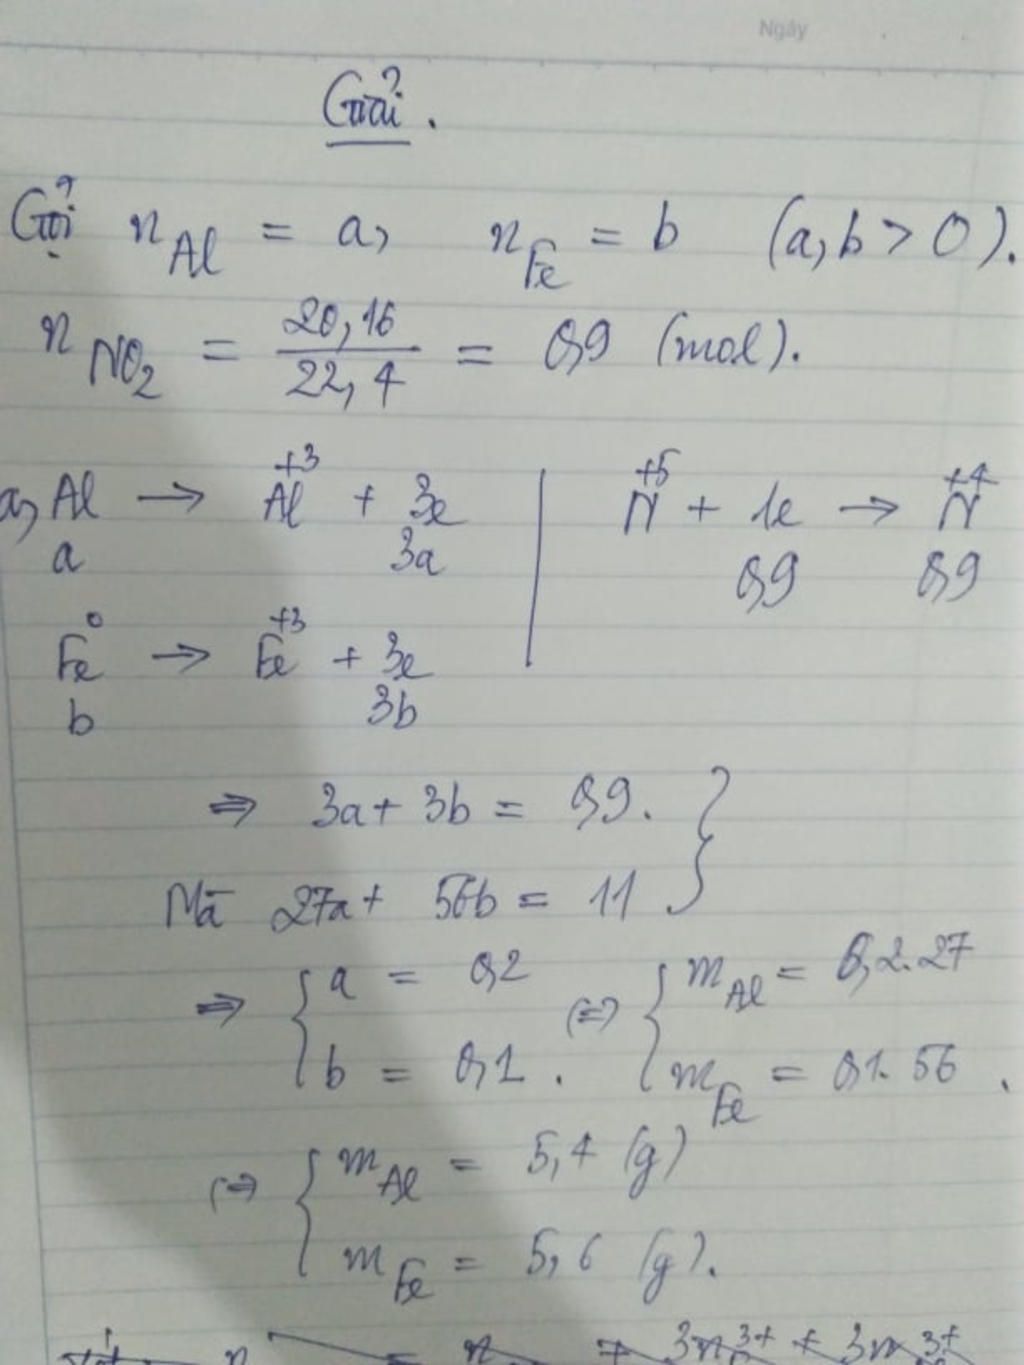 Ngày
Giải.
Gọi n_Al = a, n_Fe = b (a, b > 0).
n_NO₂ = 20,16 / 22,4 = 0,9 (mol).
a, Al → Al⁺³ + 3e | N⁺⁵ + 1e → N⁺⁴
a 3a 0,9 0,9
Fe⁰ → Fe⁺³ + 3e
b 3b
⇒ 3a + 3b = 0,9. }
Mà 27a + 56b = 11
⇒ { a = 0,2 (⇒) { m_Al = 0,2.27
b = 0,1. m_Fe = 0,1.56.
(⇒) { m_Al = 5,4 (g)
m_Fe = 5,6 (g).